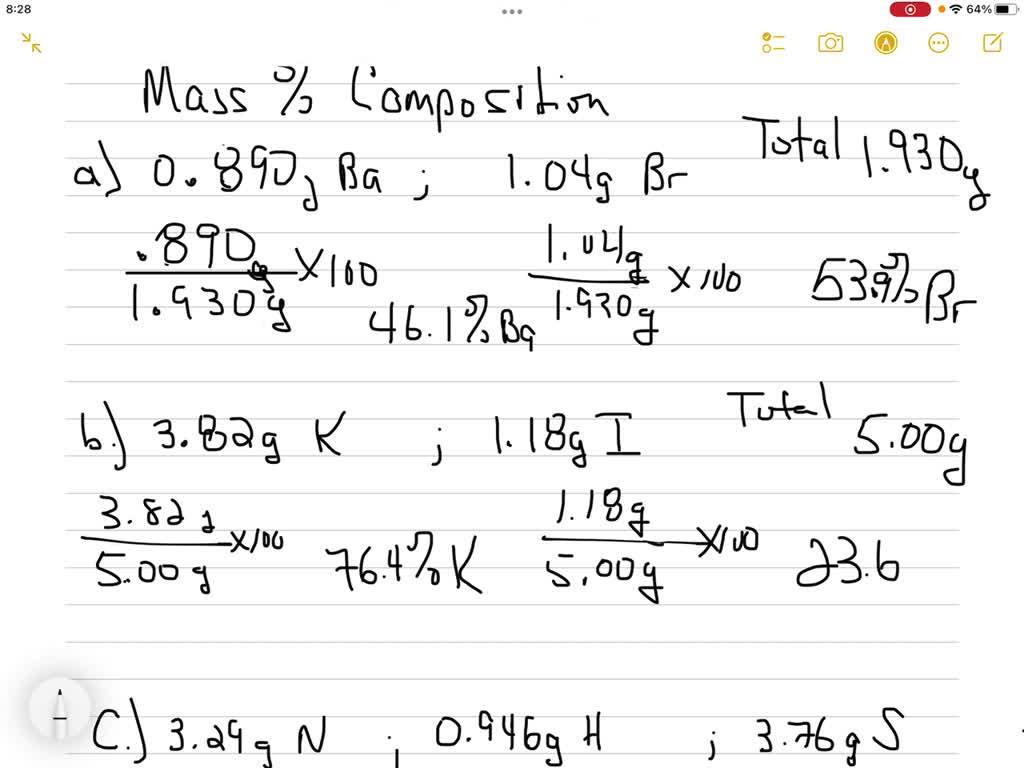 8:28
64%
Mass % Composition
a) 0.890g Ba ; 1.04g Br Total 1.930g
.890g / 1.930g X100 46.1% Ba 1.04g / 1.930g X100 53.9% Br
b.) 3.82g K ; 1.18g I Total 5.00g
3.82g / 5.00g X100 76.4% K 1.18g / 5.00g X100 23.6
C.) 3.29g N ; 0.946g H ; 3.76g S